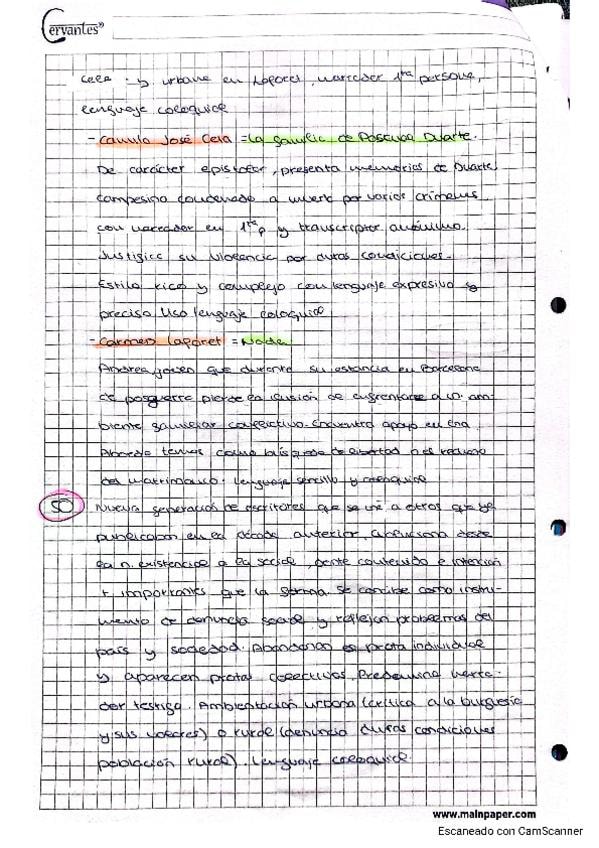 Cervantes®
Cela y urbana en Laforet, narrador 1ra persona,
lenguaje coloquial
- Camilo José Cela = La familia de Pascual Duarte.
De carácter epistolar, presenta memorias de Duarte,
campesino condenado a muerte por varios crímenes
con narrador en 1ra p y transcriptor anónimo.
Justifica su violencia por duras condiciones.
Estilo rico y complejo con lenguaje expresivo y
preciso. Uso lenguaje coloquial
- Carmen Laforet = Nada
Andrea, joven que durante su estancia en Barcelona
de posguerra pierde la ilusión de enfrentarse a un am-
biente familiar conflictivo. Encuentra apoyo en Ena.
Aborda temas como búsqueda de libertad o el rechazo
del matrimonio. Lenguaje sencillo y
50 Nueva generación de escritores que se une a otros que ya
publicaban en la década anterior, evoluciona desde
la n. existencial a la social, donde contenido e intención
+ importantes que la forma. Se concibe como instru-
mento de denuncia social y reflejan problemas del
país y sociedad. Abandonan el prota individual
y aparecen protas colectivos. Predomina narra-
dor testigo. Ambientación urbana (crítica a la burguesía
y sus valores) o rural (denuncia duras condiciones
población rural). Lenguaje coloquial.
www.mainpaper.com
Escaneado con CamScanner